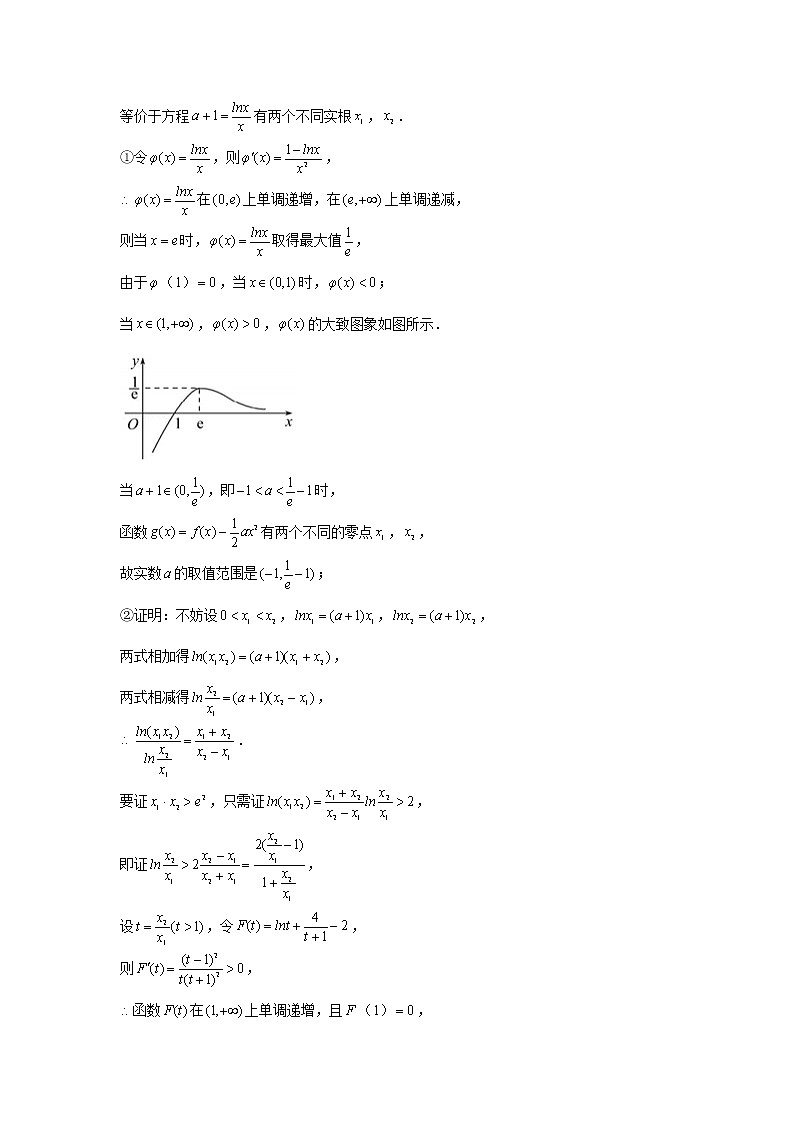 等价于方程 $a+1=\frac{lnx}{x}$ 有两个不同实根 $x_1$，$x_2$．
①令 $\varphi(x)=\frac{lnx}{x}$，则 $\varphi'(x)=\frac{1-lnx}{x^2}$，
∴ $\varphi(x)=\frac{lnx}{x}$ 在 $(0,e)$ 上单调递增，在 $(e,+\infty)$ 上单调递减，
则当 $x=e$ 时，$\varphi(x)=\frac{lnx}{x}$ 取得最大值 $\frac{1}{e}$，
由于 $\varphi$（1）$=0$，当 $x\in(0,1)$ 时，$\varphi(x)<0$；
当 $x\in(1,+\infty)$，$\varphi(x)>0$，$\varphi(x)$ 的大致图象如图所示．
y
$\frac{1}{e}$
O 1 e x
当 $a+1\in(0,\frac{1}{e})$，即 $-1<a<\frac{1}{e}-1$ 时，
函数 $g(x)=f(x)-\frac{1}{2}ax^2$ 有两个不同的零点 $x_1$，$x_2$，
故实数 $a$ 的取值范围是 $(-1,\frac{1}{e}-1)$；
②证明：不妨设 $0<x_1<x_2$，$lnx_1=(a+1)x_1$，$lnx_2=(a+1)x_2$，
两式相加得 $ln(x_1x_2)=(a+1)(x_1+x_2)$，
两式相减得 $ln\frac{x_2}{x_1}=(a+1)(x_2-x_1)$，
∴ $\frac{ln(x_1x_2)}{ln\frac{x_2}{x_1}}=\frac{x_1+x_2}{x_2-x_1}$．
要证 $x_1\cdot x_2>e^2$，只需证 $ln(x_1x_2)=\frac{x_1+x_2}{x_2-x_1}ln\frac{x_2}{x_1}>2$，
即证 $ln\frac{x_2}{x_1}>2\frac{x_2-x_1}{x_2+x_1}=\frac{2(\frac{x_2}{x_1}-1)}{1+\frac{x_2}{x_1}}$，
设 $t=\frac{x_2}{x_1}(t>1)$，令 $F(t)=lnt+\frac{4}{t+1}-2$，
则 $F'(t)=\frac{(t-1)^2}{t(t+1)^2}>0$，
∴函数 $F(t)$ 在 $(1,+\infty)$ 上单调递增，且 $F$（1）$=0$，